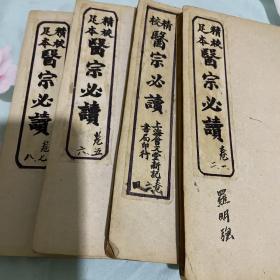 精校
足本
醫宗必讀
卷七
八
精校
足本
醫宗必讀
卷五
六
精校
醫宗必讀
上海會文堂新記
書局印行
卷三
四
精校
足本
醫宗必讀
卷一
二
羅明強